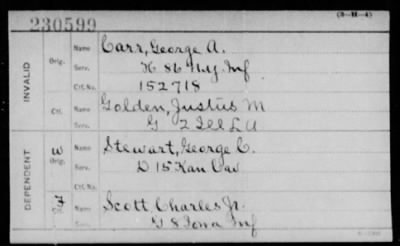 230599
(3-H-4)
INVALID
Orig.
Name Carr, George A.
Serv. K 86 N.Y. Inf
Ctf. No. 152718
Ctf.
Name Golden, Justus M
Serv. G 2 Ill L A
DEPENDENT
W
Orig.
Name Stewart, George C.
Serv. D 15 Kan Cav
Ctf. No.
F
Ctf.
Name Scott Charles Jr.
Serv. G 8 Iowa Inf